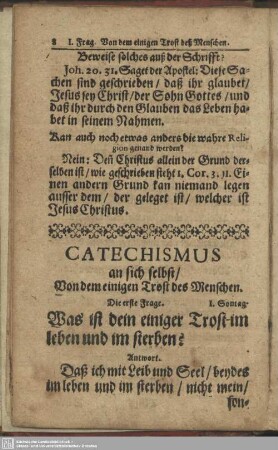 8 I. Frag. Von dem einigen Trost deß Menschen.
Beweise solches auß der Schrifft:
Joh. 20. 31. Saget der Apostel: Diese Sa-
chen sind geschrieben/ daß ihr glaubet/
Jesus sey Christ/ der Sohn Gottes/ und
daß ihr durch den Glauben das Leben ha-
bet in seinem Nahmen.
Kan auch noch etwas anders die wahre Reli-
gion genand werden?
Nein: Deñ Christus allein der Grund der-
selben ist/ wie geschrieben steht 1. Cor. 3. 11. Ei-
nen andern Grund kan niemand legen
ausser dem/ der geleget ist/ welcher ist
Jesus Christus.
CATECHISMUS
an sich selbst/
Von dem einigen Trost des Menschen.
Die erste Frage. 1. Sontag.
Was ist dein einiger Trost im
leben und im sterben?
Antwort.
Daß ich mit Leib und Seel/ beydes
im leben und im sterben/ nicht mein/
son-